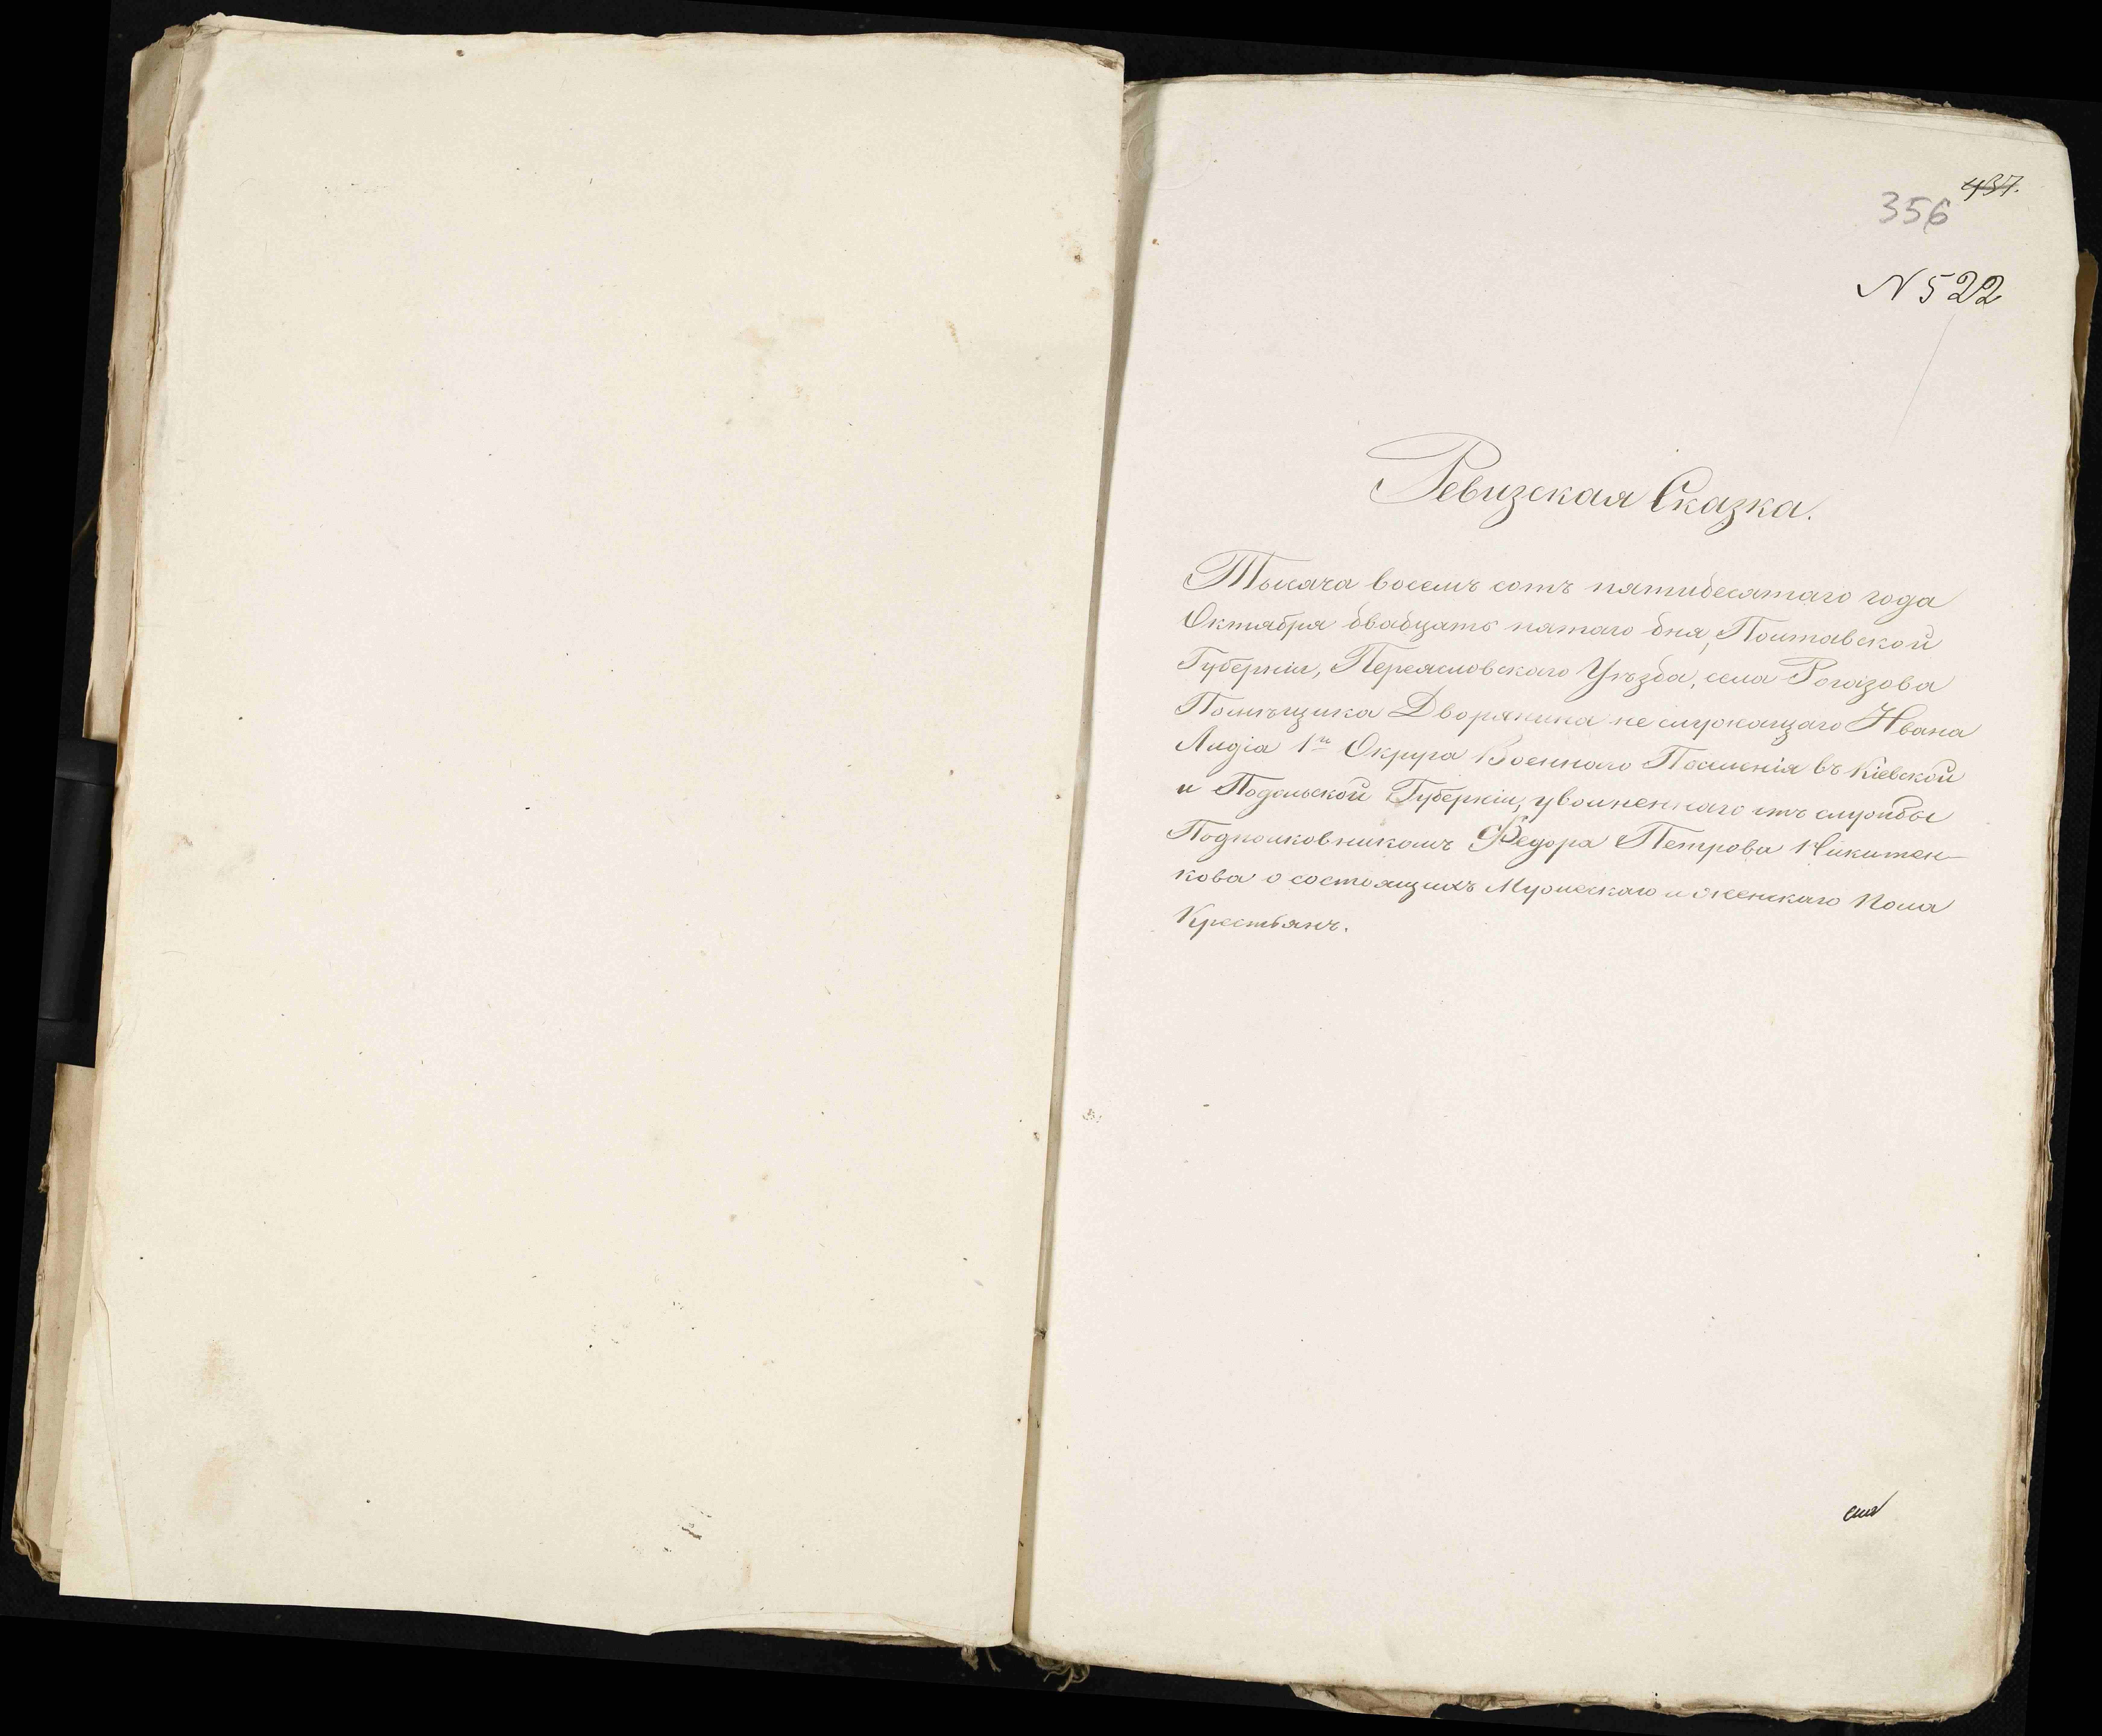 437.
356
N 522
Ревизская Сказка.
Тысяча восемь сотъ пятидесятаго года
Октября двадцать пятаго дня, Полтавской
Губерніи, Переяславскаго Уѣзда, села Рогозова
Помѣщика Дворянина не служащаго Ивана
1й Округа Военнаго Поселенія въ Кіевской
и Подольской Губерніи, уволненнаго отъ службы
Подполковникомъ Федора Петрова Никитен-
кова о состоящихъ Мужескаго и женскаго Пола
Крестьянъ.